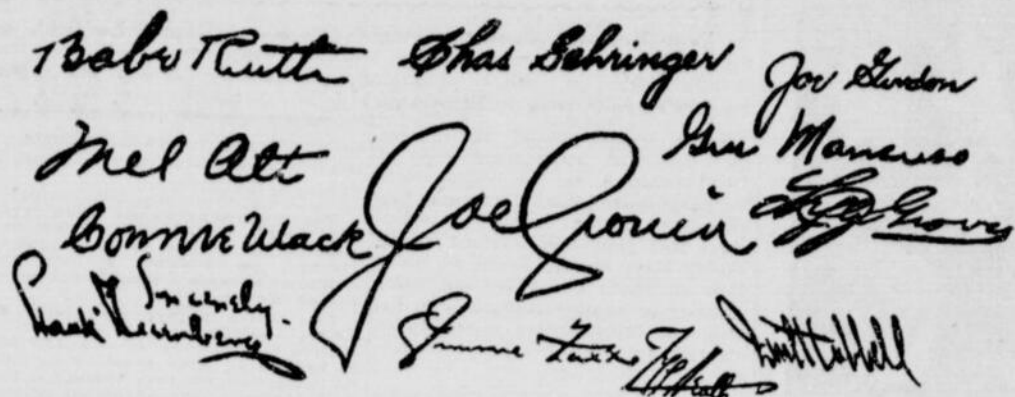 Babe Ruth Chas Gehringer Joe Gordon
Mel Ott Gus Mancuso
Connie Mack Joe Cronin Lefty Grove
Sincerely
Hank Greenberg
Jimmie Foxx Carl Hubbell